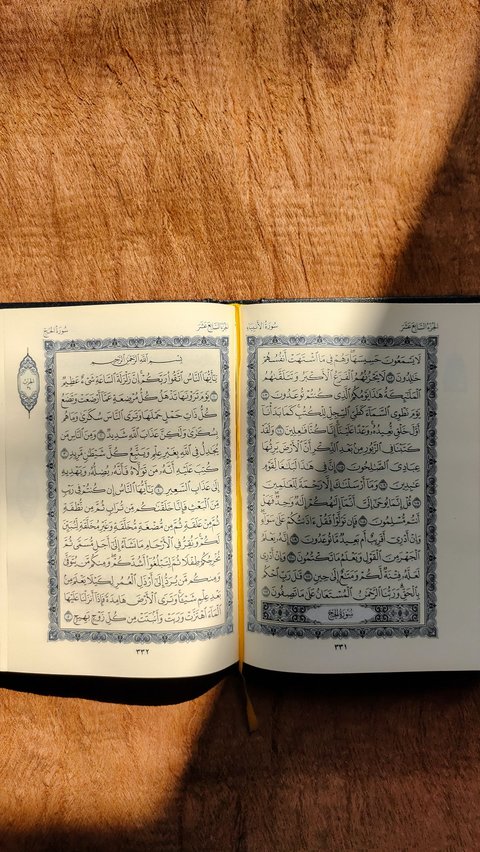 الجزء السابع عشر
سورة الأنبياء
لَا يَسْمَعُونَ حَسِيسَهَا ۖ وَهُمْ فِي مَا ٱشْتَهَتْ أَنفُسُهُمْ
خَٰلِدُونَ ١٠٢ لَا يَحْزُنُهُمُ ٱلْفَزَعُ ٱلْأَكْبَرُ وَتَتَلَقَّىٰهُمُ
ٱلْمَلَٰٓئِكَةُ هَٰذَا يَوْمُكُمُ ٱلَّذِي كُنتُمْ تُوعَدُونَ ١٠٣
يَوْمَ نَطْوِي ٱلسَّمَآءَ كَطَيِّ ٱلسِّجِلِّ لِلْكُتُبِ ۚ كَمَا بَدَأْنَآ
أَوَّلَ خَلْقٍ نُّعِيدُهُۥ ۚ وَعْدًا عَلَيْنَآ ۚ إِنَّا كُنَّا فَٰعِلِينَ ١٠٤ وَلَقَدْ
كَتَبْنَا فِي ٱلزَّبُورِ مِنۢ بَعْدِ ٱلذِّكْرِ أَنَّ ٱلْأَرْضَ يَرِثُهَا
عِبَادِيَ ٱلصَّٰلِحُونَ ١٠٥ إِنَّ فِي هَٰذَا لَبَلَٰغًا لِّقَوْمٍ
عَٰبِدِينَ ١٠٦ وَمَآ أَرْسَلْنَٰكَ إِلَّا رَحْمَةً لِّلْعَٰلَمِينَ
١٠٧ قُلْ إِنَّمَا يُوحَىٰٓ إِلَيَّ أَنَّمَآ إِلَٰهُكُمْ إِلَٰهٌ وَٰحِدٌ ۖ فَهَلْ
أَنتُم مُّسْلِمُونَ ١٠٨ فَإِن تَوَلَّوْا۟ فَقُلْ ءَاذَنتُكُمْ عَلَىٰ سَوَآءٍ ۖ
وَإِنْ أَدْرِيٓ أَقَرِيبٌ أَم بَعِيدٌ مَّا تُوعَدُونَ ١٠٩ إِنَّهُۥ يَعْلَمُ
ٱلْجَهْرَ مِنَ ٱلْقَوْلِ وَيَعْلَمُ مَا تَكْتُمُونَ ١١٠ وَإِنْ أَدْرِي
لَعَلَّهُۥ فِتْنَةٌ لَّكُمْ وَمَتَٰعٌ إِلَىٰ حِينٍ ١١١ قَٰلَ رَبِّ ٱحْكُم
بِٱلْحَقِّ ۗ وَرَبُّنَا ٱلرَّحْمَٰنُ ٱلْمُسْتَعَانُ عَلَىٰ مَا تَصِفُونَ ١١٢
سُورَةُ الحَجِّ
٣٣١
الجزء السابع عشر
سورة الحج
بِسْمِ ٱللَّهِ ٱلرَّحْمَٰنِ ٱلرَّحِيمِ
يَٰٓأَيُّهَا ٱلنَّاسُ ٱتَّقُوا۟ رَبَّكُمْ ۚ إِنَّ زَلْزَلَةَ ٱلسَّاعَةِ شَيْءٌ عَظِيمٌ
١ يَوْمَ تَرَوْنَهَا تَذْهَلُ كُلُّ مُرْضِعَةٍ عَمَّآ أَرْضَعَتْ وَتَضَعُ
كُلُّ ذَاتِ حَمْلٍ حَمْلَهَا وَتَرَى ٱلنَّاسَ سُكَٰرَىٰ وَمَا هُم
بِسُكَٰرَىٰ وَلَٰكِنَّ عَذَابَ ٱللَّهِ شَدِيدٌ ٢ وَمِنَ ٱلنَّاسِ مَن
يُجَٰدِلُ فِي ٱللَّهِ بِغَيْرِ عِلْمٍ وَيَتَّبِعُ كُلَّ شَيْطَٰنٍ مَّرِيدٍ ٣
كُتِبَ عَلَيْهِ أَنَّهُۥ مَن تَوَلَّاهُ فَأَنَّهُۥ يُضِلُّهُۥ وَيَهْدِيهِ
إِلَىٰ عَذَابِ ٱلسَّعِيرِ ٤ يَٰٓأَيُّهَا ٱلنَّاسُ إِن كُنتُمْ فِي رَيْبٍ
مِّنَ ٱلْبَعْثِ فَإِنَّا خَلَقْنَٰكُم مِّن تُرَابٍ ثُمَّ مِن نُّطْفَةٍ
ثُمَّ مِنْ عَلَقَةٍ ثُمَّ مِن مُّضْغَةٍ مُّخَلَّقَةٍ وَغَيْرِ مُخَلَّقَةٍ لِّنُبَيِّنَ
لَكُمْ ۚ وَنُقِرُّ فِي ٱلْأَرْحَامِ مَا نَشَآءُ إِلَىٰٓ أَجَلٍ مُّسَمًّى ثُمَّ
نُخْرِجُكُمْ طِفْلًا ثُمَّ لِتَبْلُغُوٓا۟ أَشُدَّكُمْ ۖ وَمِنكُم مَّن يُتَوَفَّىٰ
وَمِنكُم مَّن يُرَدُّ إِلَىٰٓ أَرْذَلِ ٱلْعُمُرِ لِكَيْلَا يَعْلَمَ مِنۢ
بَعْدِ عِلْمٍ شَيْـًٔا ۚ وَتَرَى ٱلْأَرْضَ هَامِدَةً فَإِذَآ أَنزَلْنَا عَلَيْهَا
ٱلْمَآءَ ٱهْتَزَّتْ وَرَبَتْ وَأَنۢبَتَتْ مِن كُلِّ زَوْجٍۭ بَهِيجٍ ٥
الحزب
٣٣٢